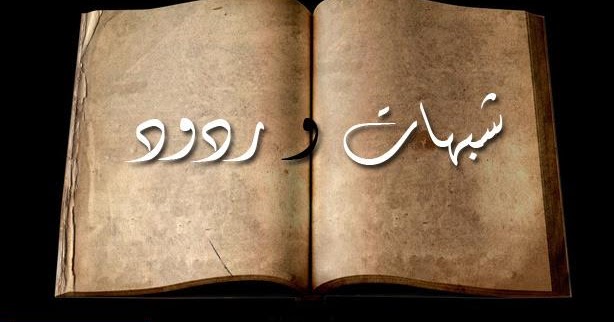 شبهات و ردود